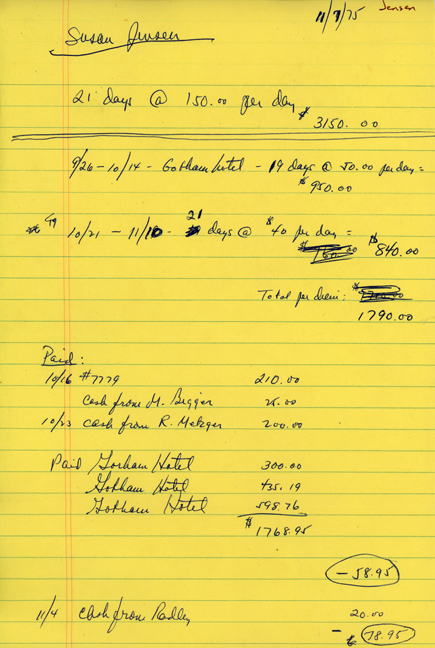 11/7/75 Jensen
Susan Jensen
21 days @ 150.00 per day
$ 3150.00
9/26-10/14 - Gotham Hotel - 19 days @ 50.00 per day =
$ 950.00
21
10/21 - 11/10 - days @ $40 per day =
$ 840.00
Total per diem:
1790.00
Paid:
10/16 #7779 210.00
Cash from M. Bigger 25.00
10/23 Cash from R. Metzger 200.00
Paid Gorham Hotel 300.00
Gotham Hotel 435.19
Gotham Hotel 598.76
$ 1768.95
- 58.95
11/4 Cash from Radley 20.00
- 78.95